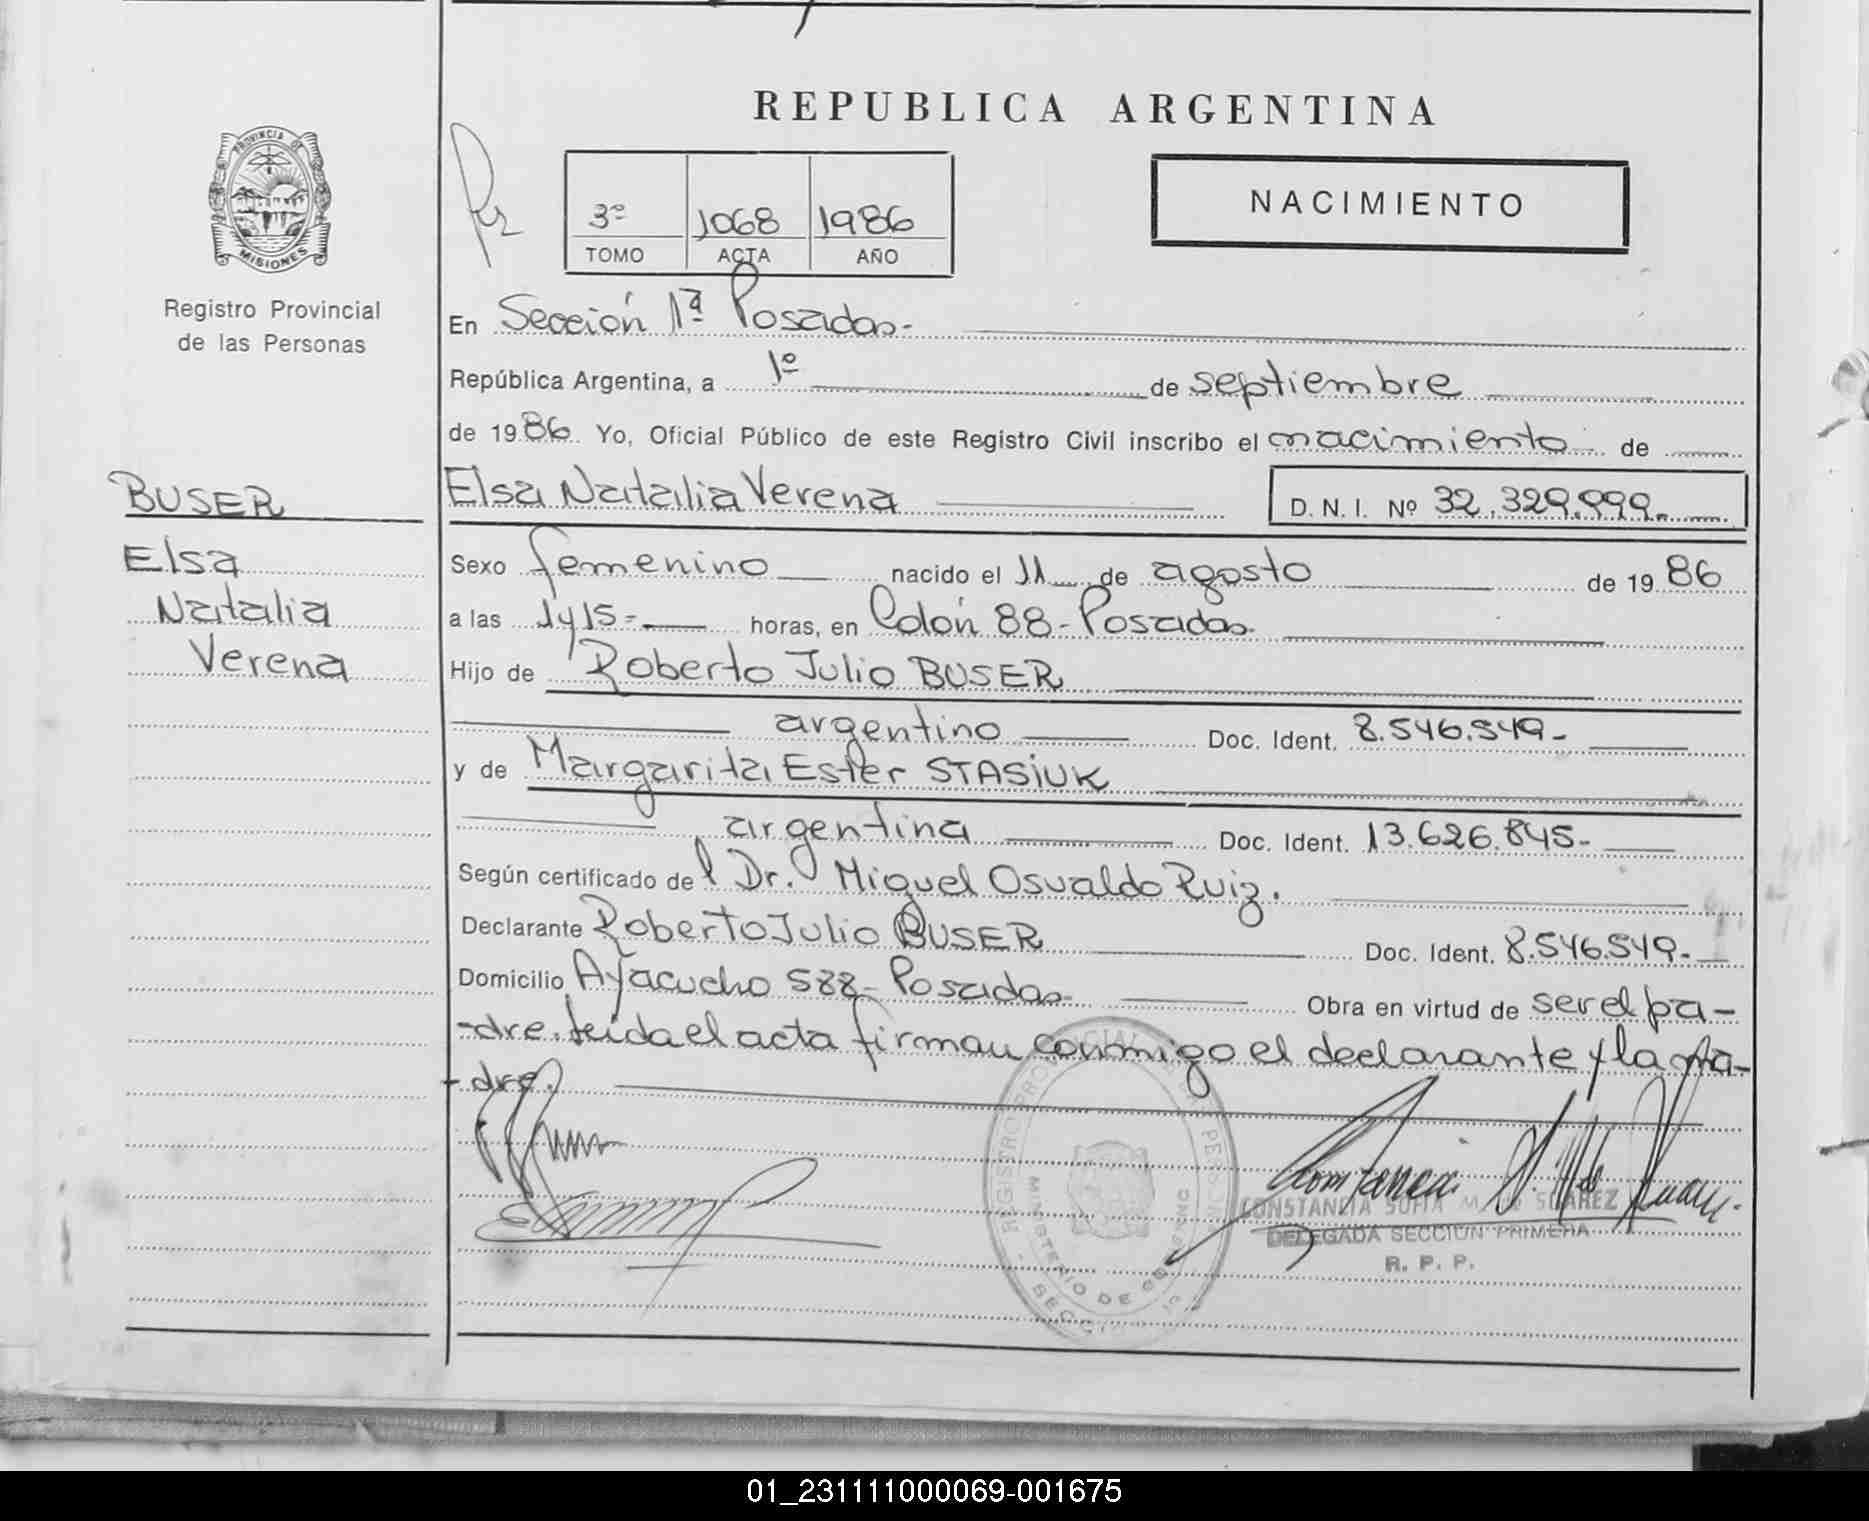 REPUBLICA ARGENTINA
PROVINCIA DE
MISIONES
Registro Provincial
de las Personas
3º 1068 1986
TOMO ACTA AÑO
NACIMIENTO
En Sección 1ª Posadas.-
República Argentina, a 1º de septiembre
de 1986 Yo, Oficial Público de este Registro Civil inscribo el nacimiento de
BUSER
Elsa
Natalia
Verena
Elsa Natalia Verena D. N. I. Nº 32.329.999.-
Sexo femenino nacido el 11 de agosto de 1986
a las 1y15- horas, en Colón 88- Posadas.
Hijo de Roberto Julio BUSER
argentino Doc. Ident. 8.546.549-
y de Margarita Ester STASiUK
argentina Doc. Ident. 13.626.845-
Según certificado del Dr. Miguel Osvaldo Ruiz.
Declarante Roberto Julio BUSER Doc. Ident. 8.546.549-
Domicilio Ayacucho 588- Posadas- Obra en virtud de ser el pa-
-dre. Leida el acta firman conmigo el declarante y la ma-
-dre.
REGISTRO PROVINCIAL
MINISTERIO DE
CONSTANCIA SOFIA M. de SUAREZ
DELEGADA SECCION PRIMERA
R. P. P.
01_231111000069-001675